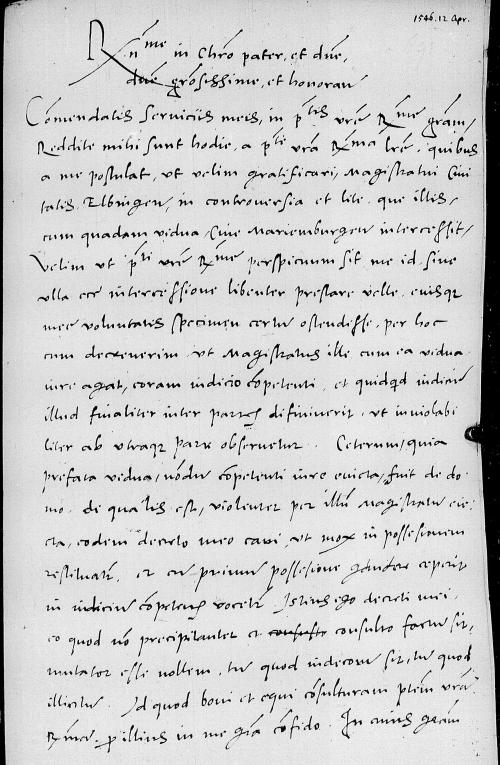 1546. 12 Apr.
R[n]me in Chro pater, et dne,
dne grosissime, et honoran
Comendatis Serviciis meis, in ptis vre Rme gram,
Reddite mihi sunt hodie, a pti vra Rma lre, quibus
a me postulat, vt velim gratificari, Magistratui Civi
tatis Elbingen, in controversia et lite, que illis,
cum quadam vidua, Cive Mariemburgen intercessit,
Velim vt pti vre Rme perspicuum sit, me id, sine
vlla ecr intercessione libenter prestare velle, eiusq
mee voluntatis specimen certu ostendisse, per hoc
cum decreverim, vt Magistratus ille cum ea vidua
iure agat, coram iudicio competenti, et quidqd iudiciu
illud finaliter inter partes difiniverit, vt inviolabi
liter ab vtraq parte observetur. Ceterum, quia
prefata vidua, nodu competenti iure evicta, fuit de do
mo, de qua lis est, violenter per illu Magistratu eie
cta, eodem decreto meo cavi, vt mox in possesionem
restituatr, et cu primu possesione gaudere ceperit
in iudiciu competens vocetr. Istius ego decreti mei,
eo quod no precipitanter et consulto consulto factu sit,
mutator esse nollem, tu quod indecoru sit, tu quod
illicitu. Id quod boni et equi consulturam ptem vram
Rma, p illius in me gra confido. In cuius gram